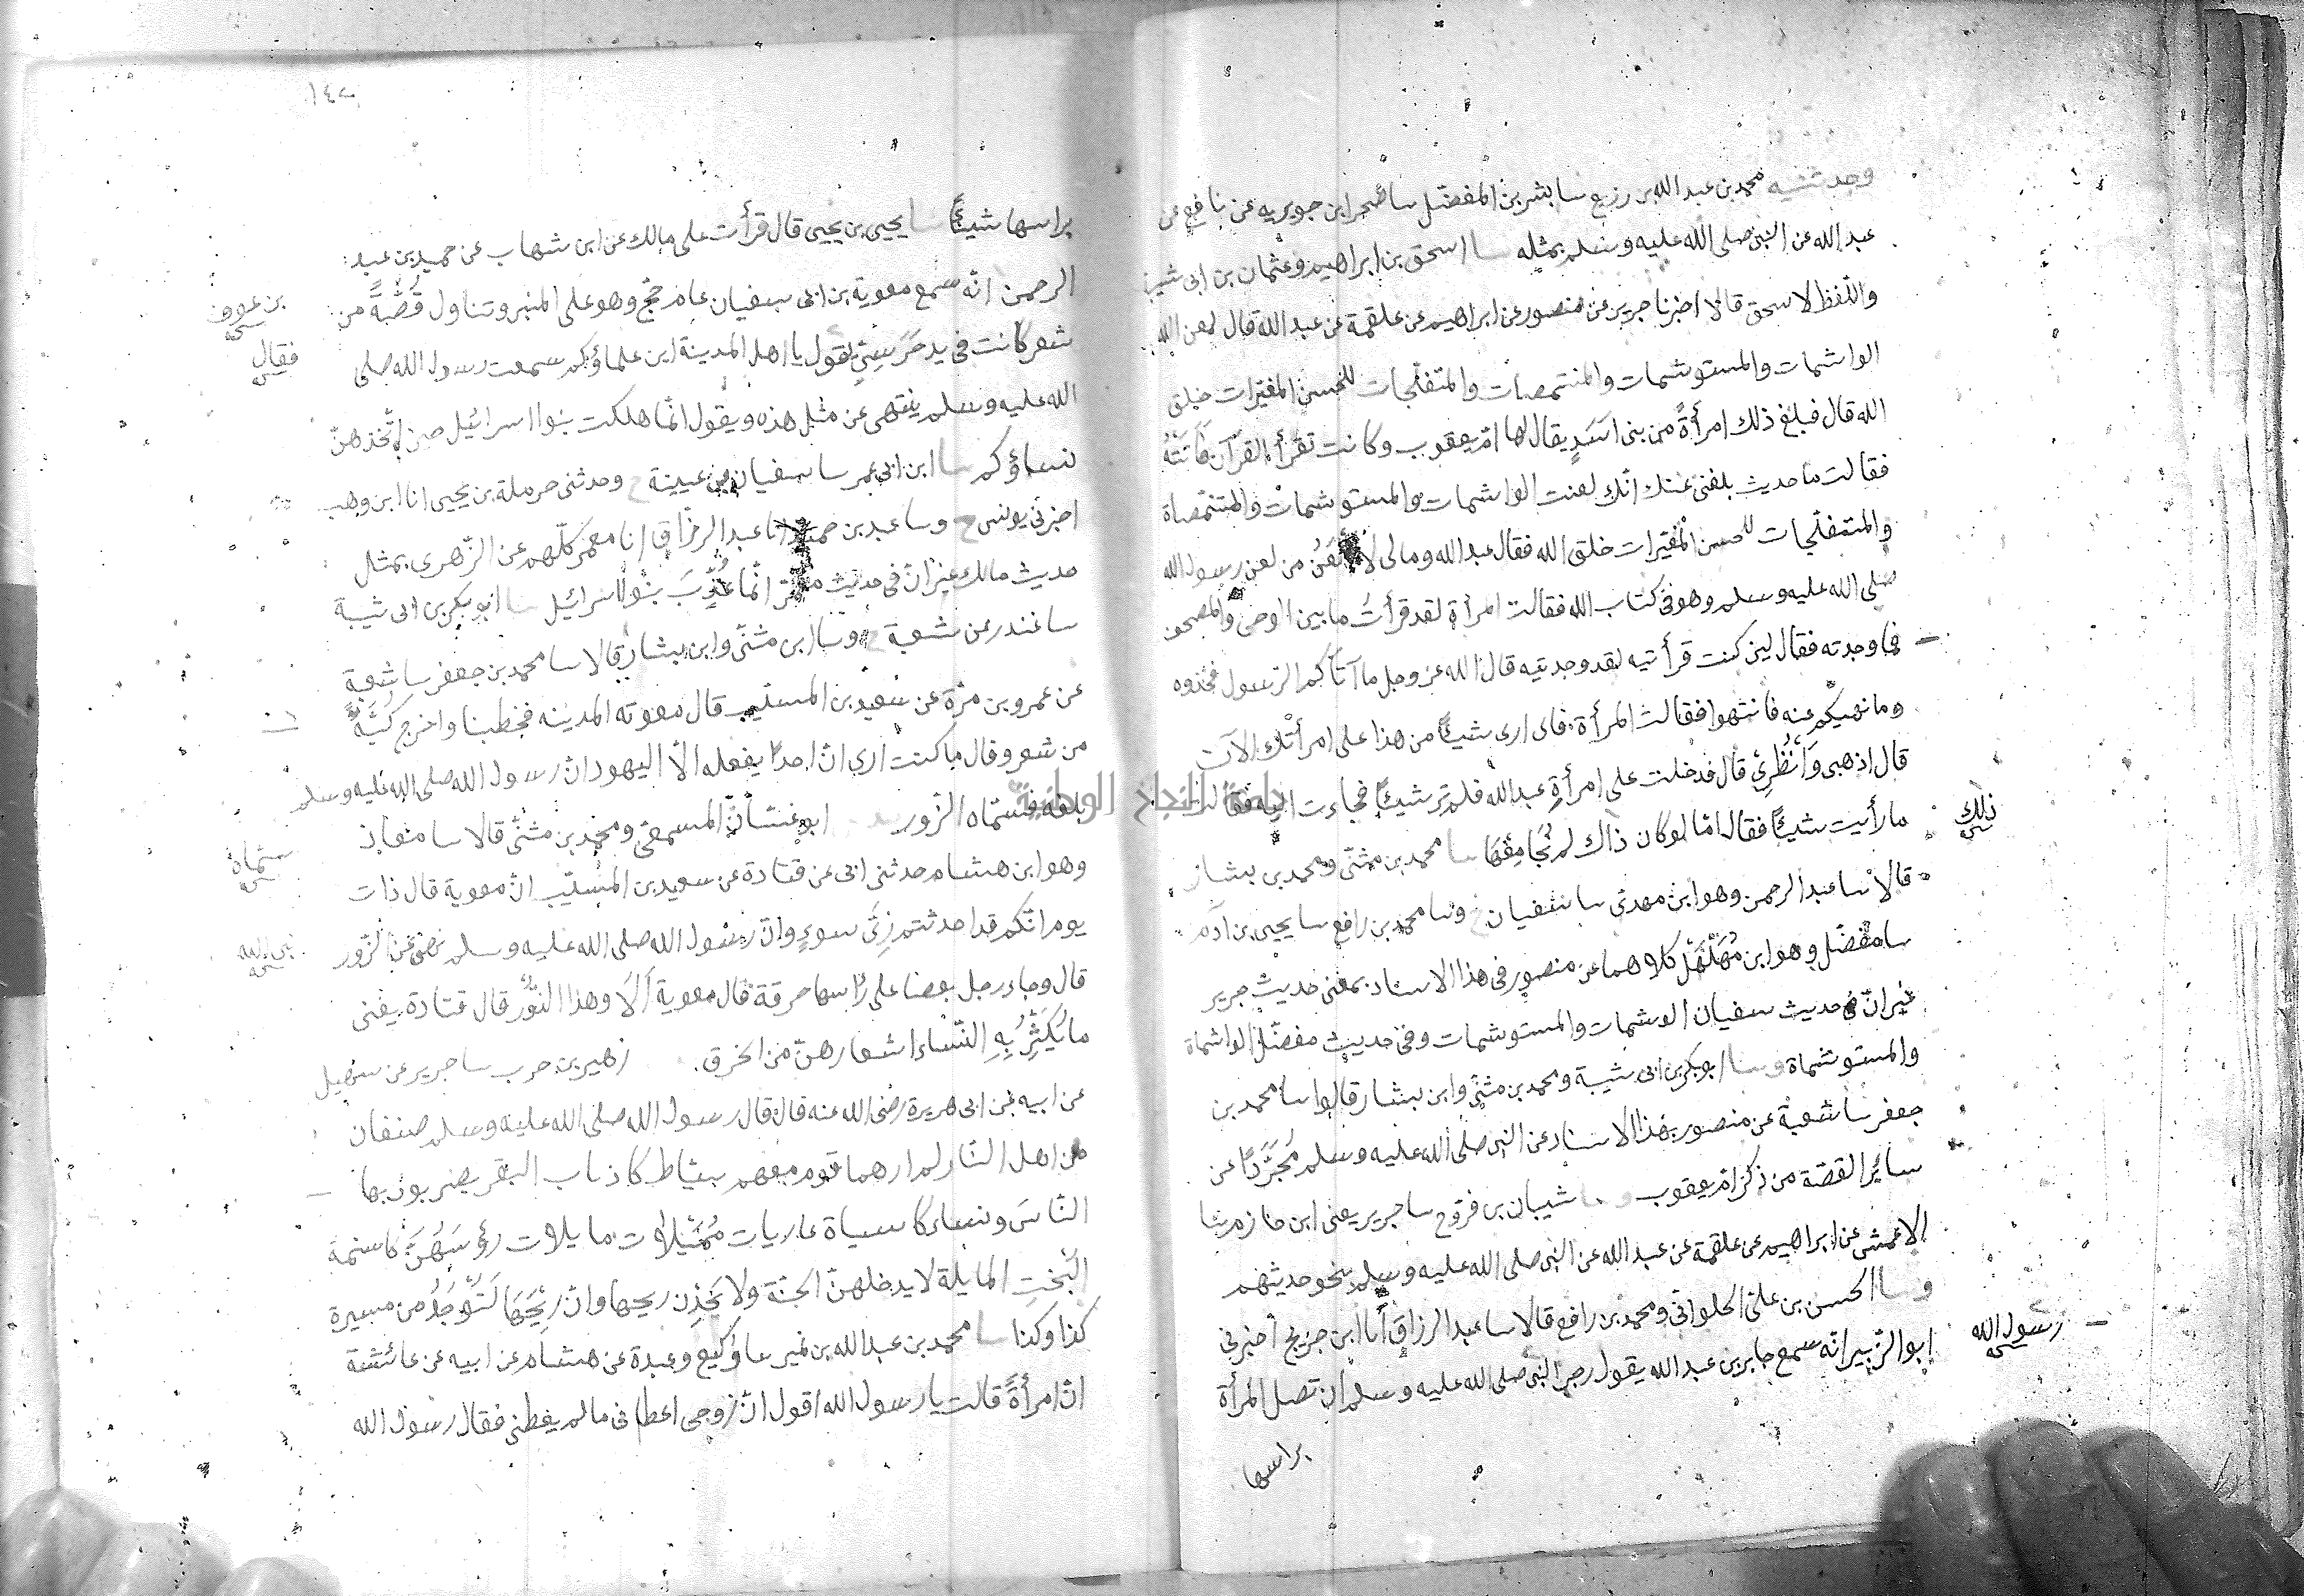 وحدثنيه محمد بن عبد الله بن بزيع سا بشر بن المفضل سا صخر ابن جويريه عن نافع عن
عبد الله عن النبي صلى الله عليه وسلم بمثله سا اسحق بن ابراهيم وعثمان بن ابى شيبة
واللفظ لاسحق قالا اخبرنا جرير عن منصور عن ابراهيم عن علقمة عن عبد الله قال لعن الله
الواشمات والمستوشمات والمتنمصات والمتفلجات للحسن المغيرات خلق
الله قال فبلغ ذلك امرأة من بنى اسد يقال لها ام يعقوب وكانت تقرأ القرآن فأتته
فقالت ما حديث بلغنى عنك انك لعنت الواشمات والمستوشمات والمتنمصاة
والمتفلجات للحسن المغيرات خلق الله فقال عبد الله ومالى لا ألعن من لعن رسول الله
صلى الله عليه وسلم وهو فى كتاب الله فقالت امرأة لقد قرأت ما بين لوحى المصحف
فما وجدته فقال لين كنت قرأتيه لقد وجدتيه قال الله عز وجل ما آتاكم الرسول فخذوه
وما نهيكم عنه فانتهوا فقالت المرأة فانى ارى شيئا من هذا على امرأتك الآن
قال اذهبى وانظرى قال فدخلت على امرأة عبد الله فلم تر شيئا فجاءت اليه فقالت
ما رأيت شيئا فقال اما لو كان ذاك لم نجامعها سا محمد بن مثنى ومحمد بن بشار
ذلك
قالا سا عبد الرحمن وهو ابن مهدى سا سفيان ح وسا محمد بن رافع سا يحيى بن آدم
سا مفضل وهو ابن مهلهل كلاهما عن منصور فى هذا الاسناد بمعنى حديث جرير
غير ان فى حديث سفيان الوشمات والمستوشمات وفى حديث مفضل الواشماة
والمستوشماة وسا ابو بكر بن ابى شيبة ومحمد بن مثنى وابن بشار قالوا سا محمد بن
جعفر سا شعبة عن منصور بهذا الاسناد عن النبى صلى الله عليه وسلم مجردا عن
سائر القصة من ذكر ام يعقوب وسا شيبان بن فروخ سا جرير يعنى ابن حازم سا
الاعمش عن ابراهيم عن علقمة عن عبد الله عن النبى صلى الله عليه وسلم بنحو حديثهم
وسا الحسن بن على الحلوانى ومحمد بن رافع قالا سا عبد الرزاق انا ابن جريج اخبرنى
ابو الزبير انه سمع جابر بن عبد الله يقول زجر النبى صلى الله عليه وسلم ان تصل المرأة
رسول الله
براسها
١٤٢
براسها شيئا سا يحيى بن يحيى قال قرأت على مالك عن ابن شهاب عن حميد بن عبد
الرحمن انه سمع معوية بن ابى سفيان عام حج وهو على المنبر وتناول قصة من
بن عوف
شعر كانت فى يد حرسى يقول يا اهل المدينة اين علماؤكم سمعت رسول الله صلى
فقال
الله عليه وسلم ينهى عن مثل هذه ويقول انما هلكت بنوا اسرائيل حين اتخذ هن
نساؤكم سا ابن ابى عمر سا سفيان بن عيينة ح وحدثنى حرملة بن يحيى انا ابن وهب
اخبرنى يونس ح وسا عبد بن حميد انا عبد الرزاق انا معمر كلهم عن الزهرى بمثل
حديث مالك غير ان فى حديث معمر انما عذب بنو اسرائيل سا ابو بكر بن ابى شيبة
سا غندر عن شعبة ح وسا ابن مثنى وابن بشار قالا سا محمد بن جعفر سا شعبة
عن عمرو بن مرة عن سعيد بن المسيب قال معوته المدينه فخطبنا واخرج كبة
من شعر وقال ما كنت ارى ان احدا يفعله الا اليهود ان رسول الله صلى الله عليه وسلم
بلغه فسماه الزور ابو غسان المسمعى ومحمد بن مثنى قالا سا معاذ
سماة
وهو ابن هشام حدثنى ابى عن قتادة عن سعيد بن المسيب ان معوية قال ذات
يوم انكم قد احدثتم زى سوء وان رسول الله صلى الله عليه وسلم نهى عن الزور
نبى الله
قال وجاء رجل بعصا على رأسها خرقة قال معوية ألا وهذا الزور قال قتادة يعنى
ما يكثر به النساء اشعارهن من الخرق زهير بن حرب سا جرير عن سهيل
عن ابيه عن ابى هريرة رضى الله عنه قال قال رسول الله صلى الله عليه وسلم صنفان
من اهل النار لم ارهما قوم معهم سياط كاذناب البقر يضربون بها
الناس ونساء كاسياة عاريات مميلات مايلات رؤسهن كاسنمة
البخت المايلة لا يدخلهن الجنة ولا يجدن ريحها وان ريحها لتوجد من مسيرة
كذا وكذا سا محمد بن عبد الله بن نمير سا وكيع وعبدة عن هشام عن ابيه عن عائشة
ان امرأة قالت يا رسول الله اقول ان زوجى اعطانى ما لم يعطنى فقال رسول الله